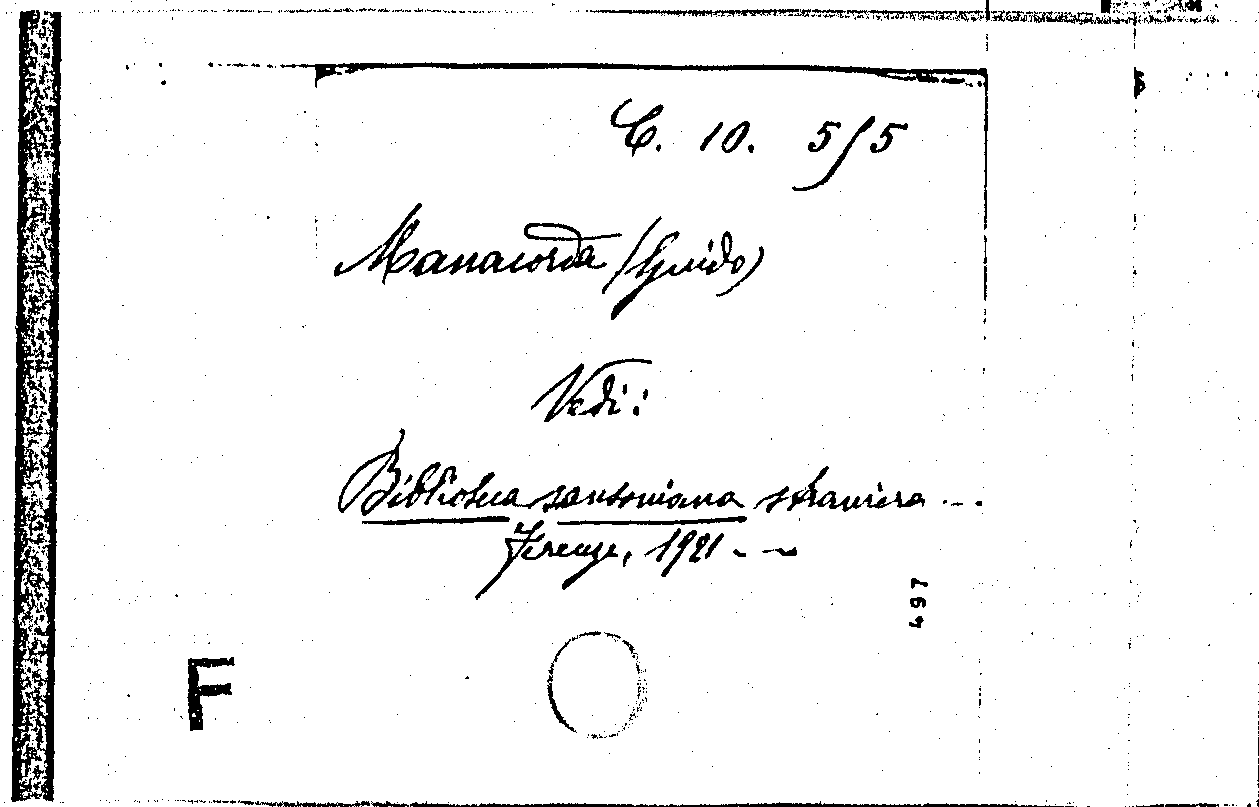 C. 10. 5/5
Manacorda (Guido)
Vedi:
Biblioteca sansoniana straniera ...
Firenze, 1921 - -
497
F